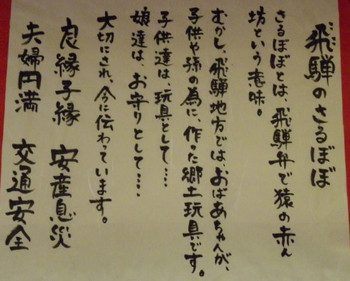 飛騨のさるぼぼ
さるぼぼとは、飛騨弁で猿の赤ん
坊という意味。
むかし、飛騨地方では、おばあちゃんが、
子供や孫の為に、作った郷土玩具です。
子供達は、玩具として…
娘達は、お守りとして…
大切にされ、今に伝わっています。
良縁子縁 安産息災
夫婦円満 交通安全